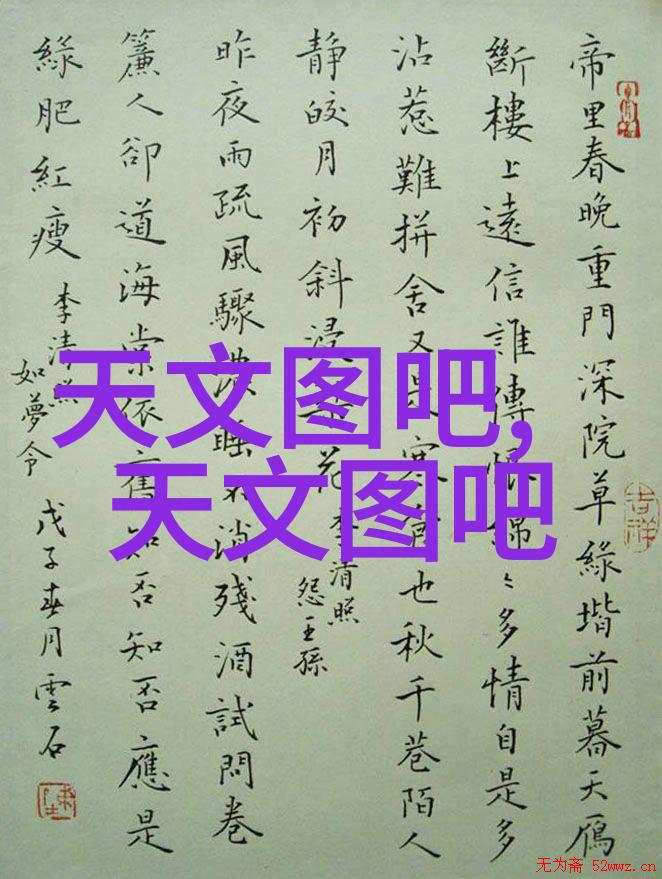 帝里春晚重門深院草綠堦前暮天鴈
斷樓上遠信誰傳恨綿〻多情自是多
沾惹難拼舍又是寒食也秋千巷陌人
静皎月初斜浸梨花
李清照
怨王孫
昨夜雨疏風驟濃睡不消殘酒試問卷
簾人卻道海棠依舊知否知否應是
綠肥紅瘦
李清照
如夢令
戊子春月雲石
吉祥
天文图吧,
天文图吧
无为斋 52wwz.cn